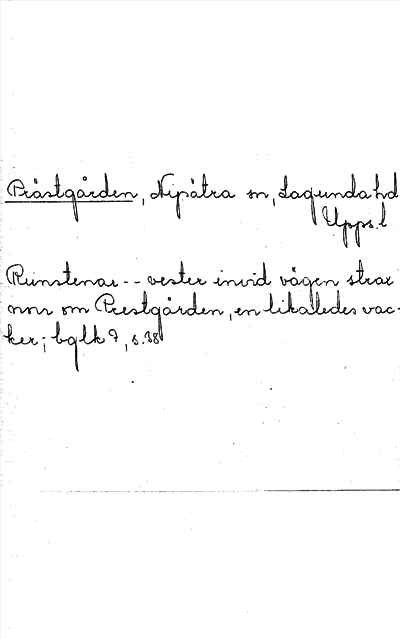 Prästgården, Nysätra sn, Lagunda hd
Upps.l
Runstenar -- vester invid vägen strax
norr om Prestgården, en likaledes vac-
ker; bglk 7, s.38